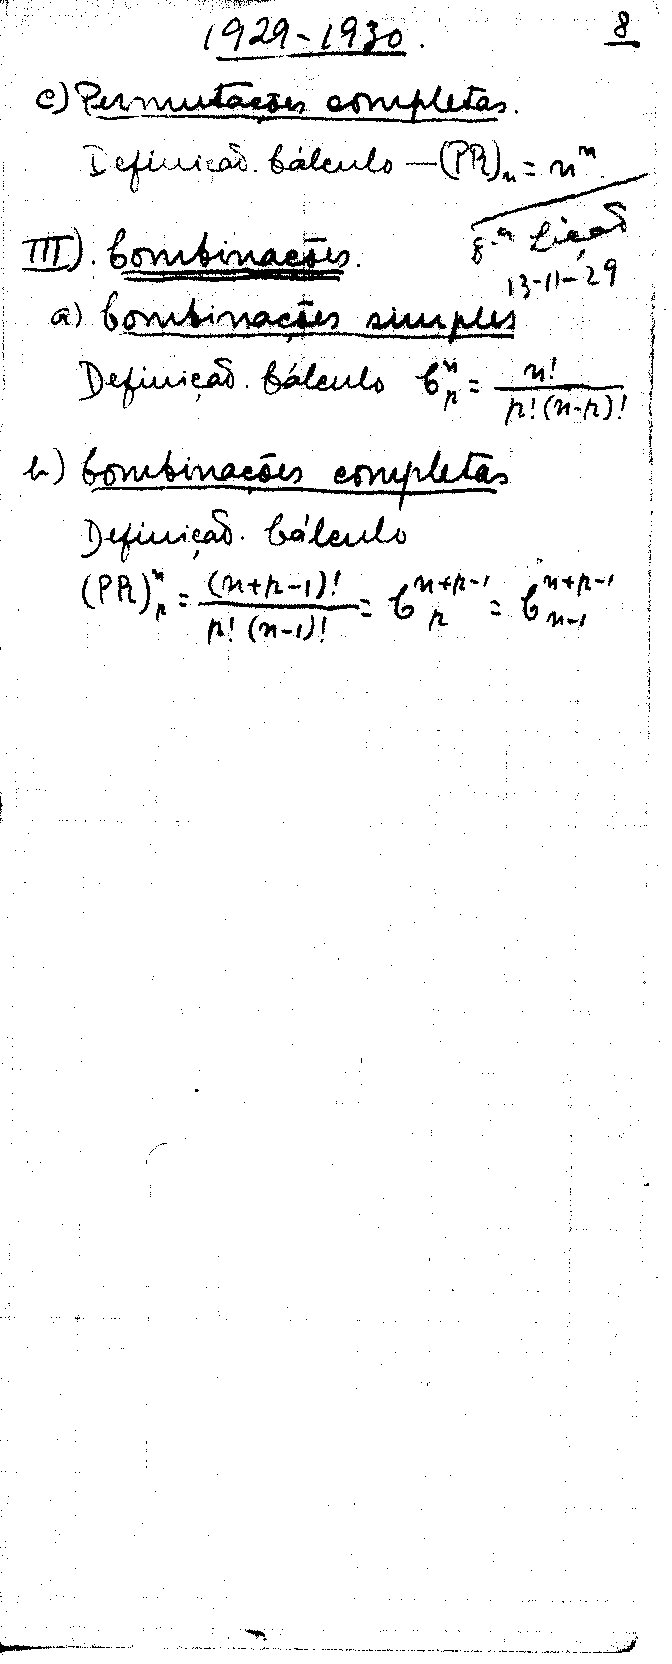 1929-1930. 8
c) Permutações completas.
Definição. Cálculo — (PR)ₙ = nⁿ.
8.ª Lição
13-11-29
III). Combinações.
a) Combinações simples
Definição. Cálculo Cⁿₚ = n! / p!(n-p)!
b) Combinações completas
Definição. Cálculo
(PR)ⁿₚ = (n+p-1)! / p! (n-1)! = Cⁿ⁺ᵖ⁻¹ₚ = Cⁿ⁺ᵖ⁻¹ₙ₋₁